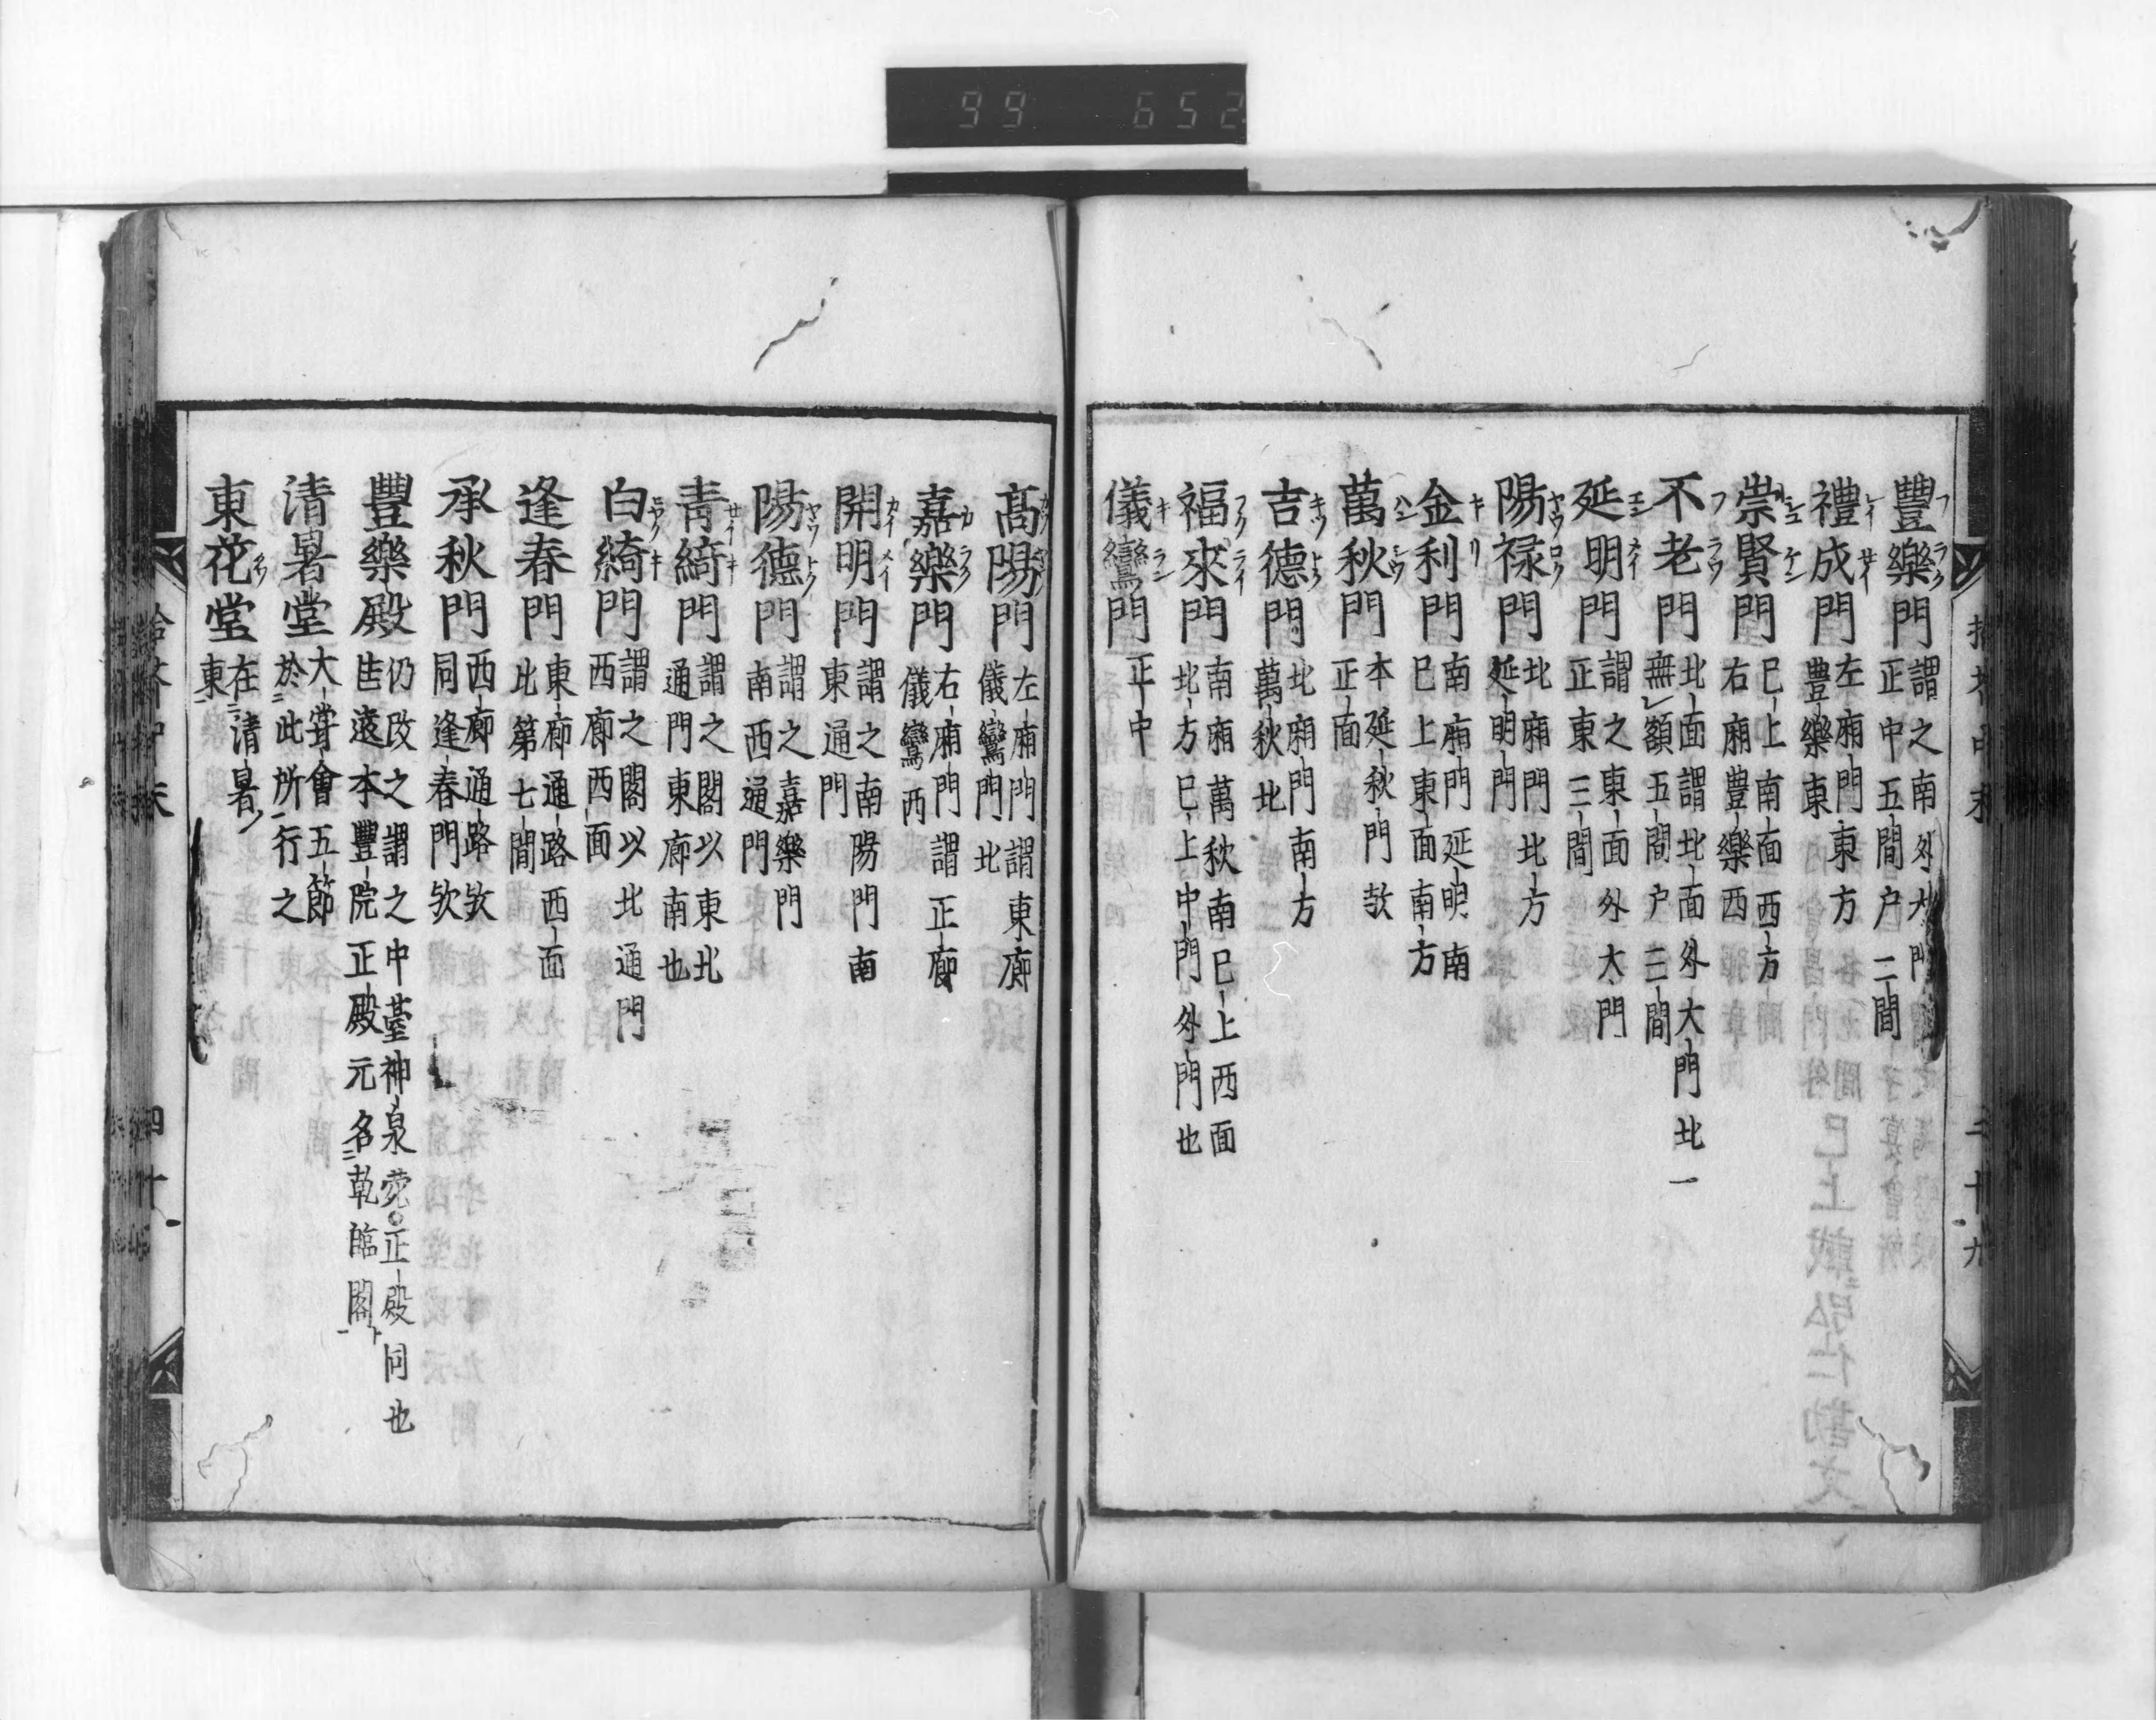 99 652
豐樂門 謂之南外大門
正中五間户二間
禮成門 左廂門東方
豊樂東
崇賢門 巳上南面西方
右廂豊樂西
不老門 北面謂北面外大門北一
無額五間户三間
延明門 謂之東面外大門
正東三間
陽禄門 北廂門北方
延明門
金利門 南廂門延明南
巳上東面南方
萬秋門 本延秋門歟
正面
吉德門 北廂門南方
萬秋北
福來門 南廂萬秋南巳上西面
北方巳上中門外門也
儀鸞門 正中
三十九
髙陽門 左廂門謂東廊
儀鸞門北
嘉樂門 右廂門謂正廊
儀鸞西
開明門 謂之南陽門南
東通門
陽德門 謂之嘉樂門
南西通門
青綺門 謂之閣以東北
通門東廊南也
白綺門 謂之閣以北通門
西廊西面
逢春門 東廊通路西面
北第七間
承秋門 西廊通路欤
同逢春門欤
豐樂殿 仍改之謂之中臺神泉苑正殿同也
遠本豐院正殿元名乾臨閣
清暑堂 大甞會五節
於此所行之
東花堂 在清暑
東
四十